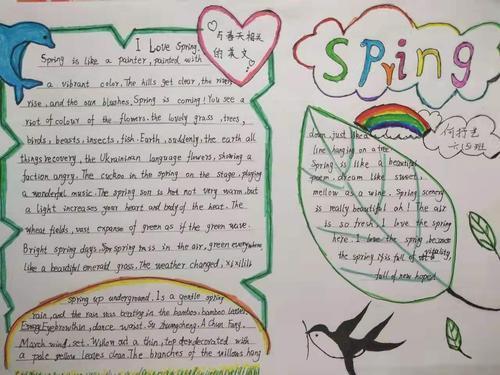 I Love Spring.
Spring is like a painter, painted with
a vibrant color. The hills get clear, the river
rise, and the sun blushes, Spring is coming! You see a
riot of colour of the flowers. the lovely grass, trees,
birds, beasts, insects, fish. Earth, suddenly, the earth all
things recovery, the Ukrainian language flowers, showing a
faction angry. The cuckoo in the spring on the stage, playing
a wonderful music. The spring son is hot not very warm, but
a light increases your heart and body of the heat. The
wheat fields, vast expanse of green as if the green wave.
Bright spring days. Sprspring is in the air, green everywhere
like a beautiful emerald grass. The weather changed, xixilili
spring up underground. Is a gentle spring
rain, and the rain was beating in the bamboo. bamboo leaves.
Eyebrowthin, dance waist. Su zhangcheng. A Chun Fang.
March wind, set. Willow out a thin, top decorated with
a pale yellow leaves clean. The branches of the willows hang
与春天相关
的英文
Spring
何打之
六四班
down, just like a
line hanging on a tree
Spring is like a beautiful
poem, dream like sweet,
mellow as a wine. Spring scenery
is really beautiful ah! The air
is so fresh, I love the spring
here. I love the spring, because
the spring is full of vitality,
full of new hope!